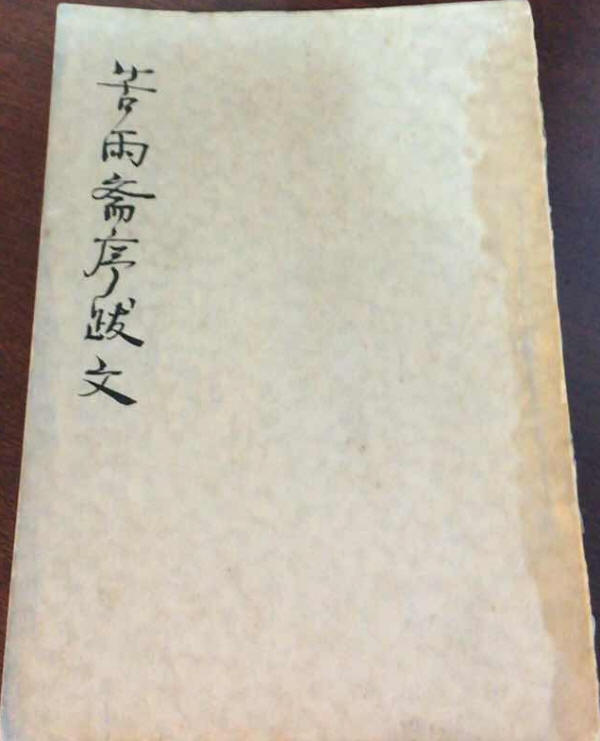 苦雨斋序跋文